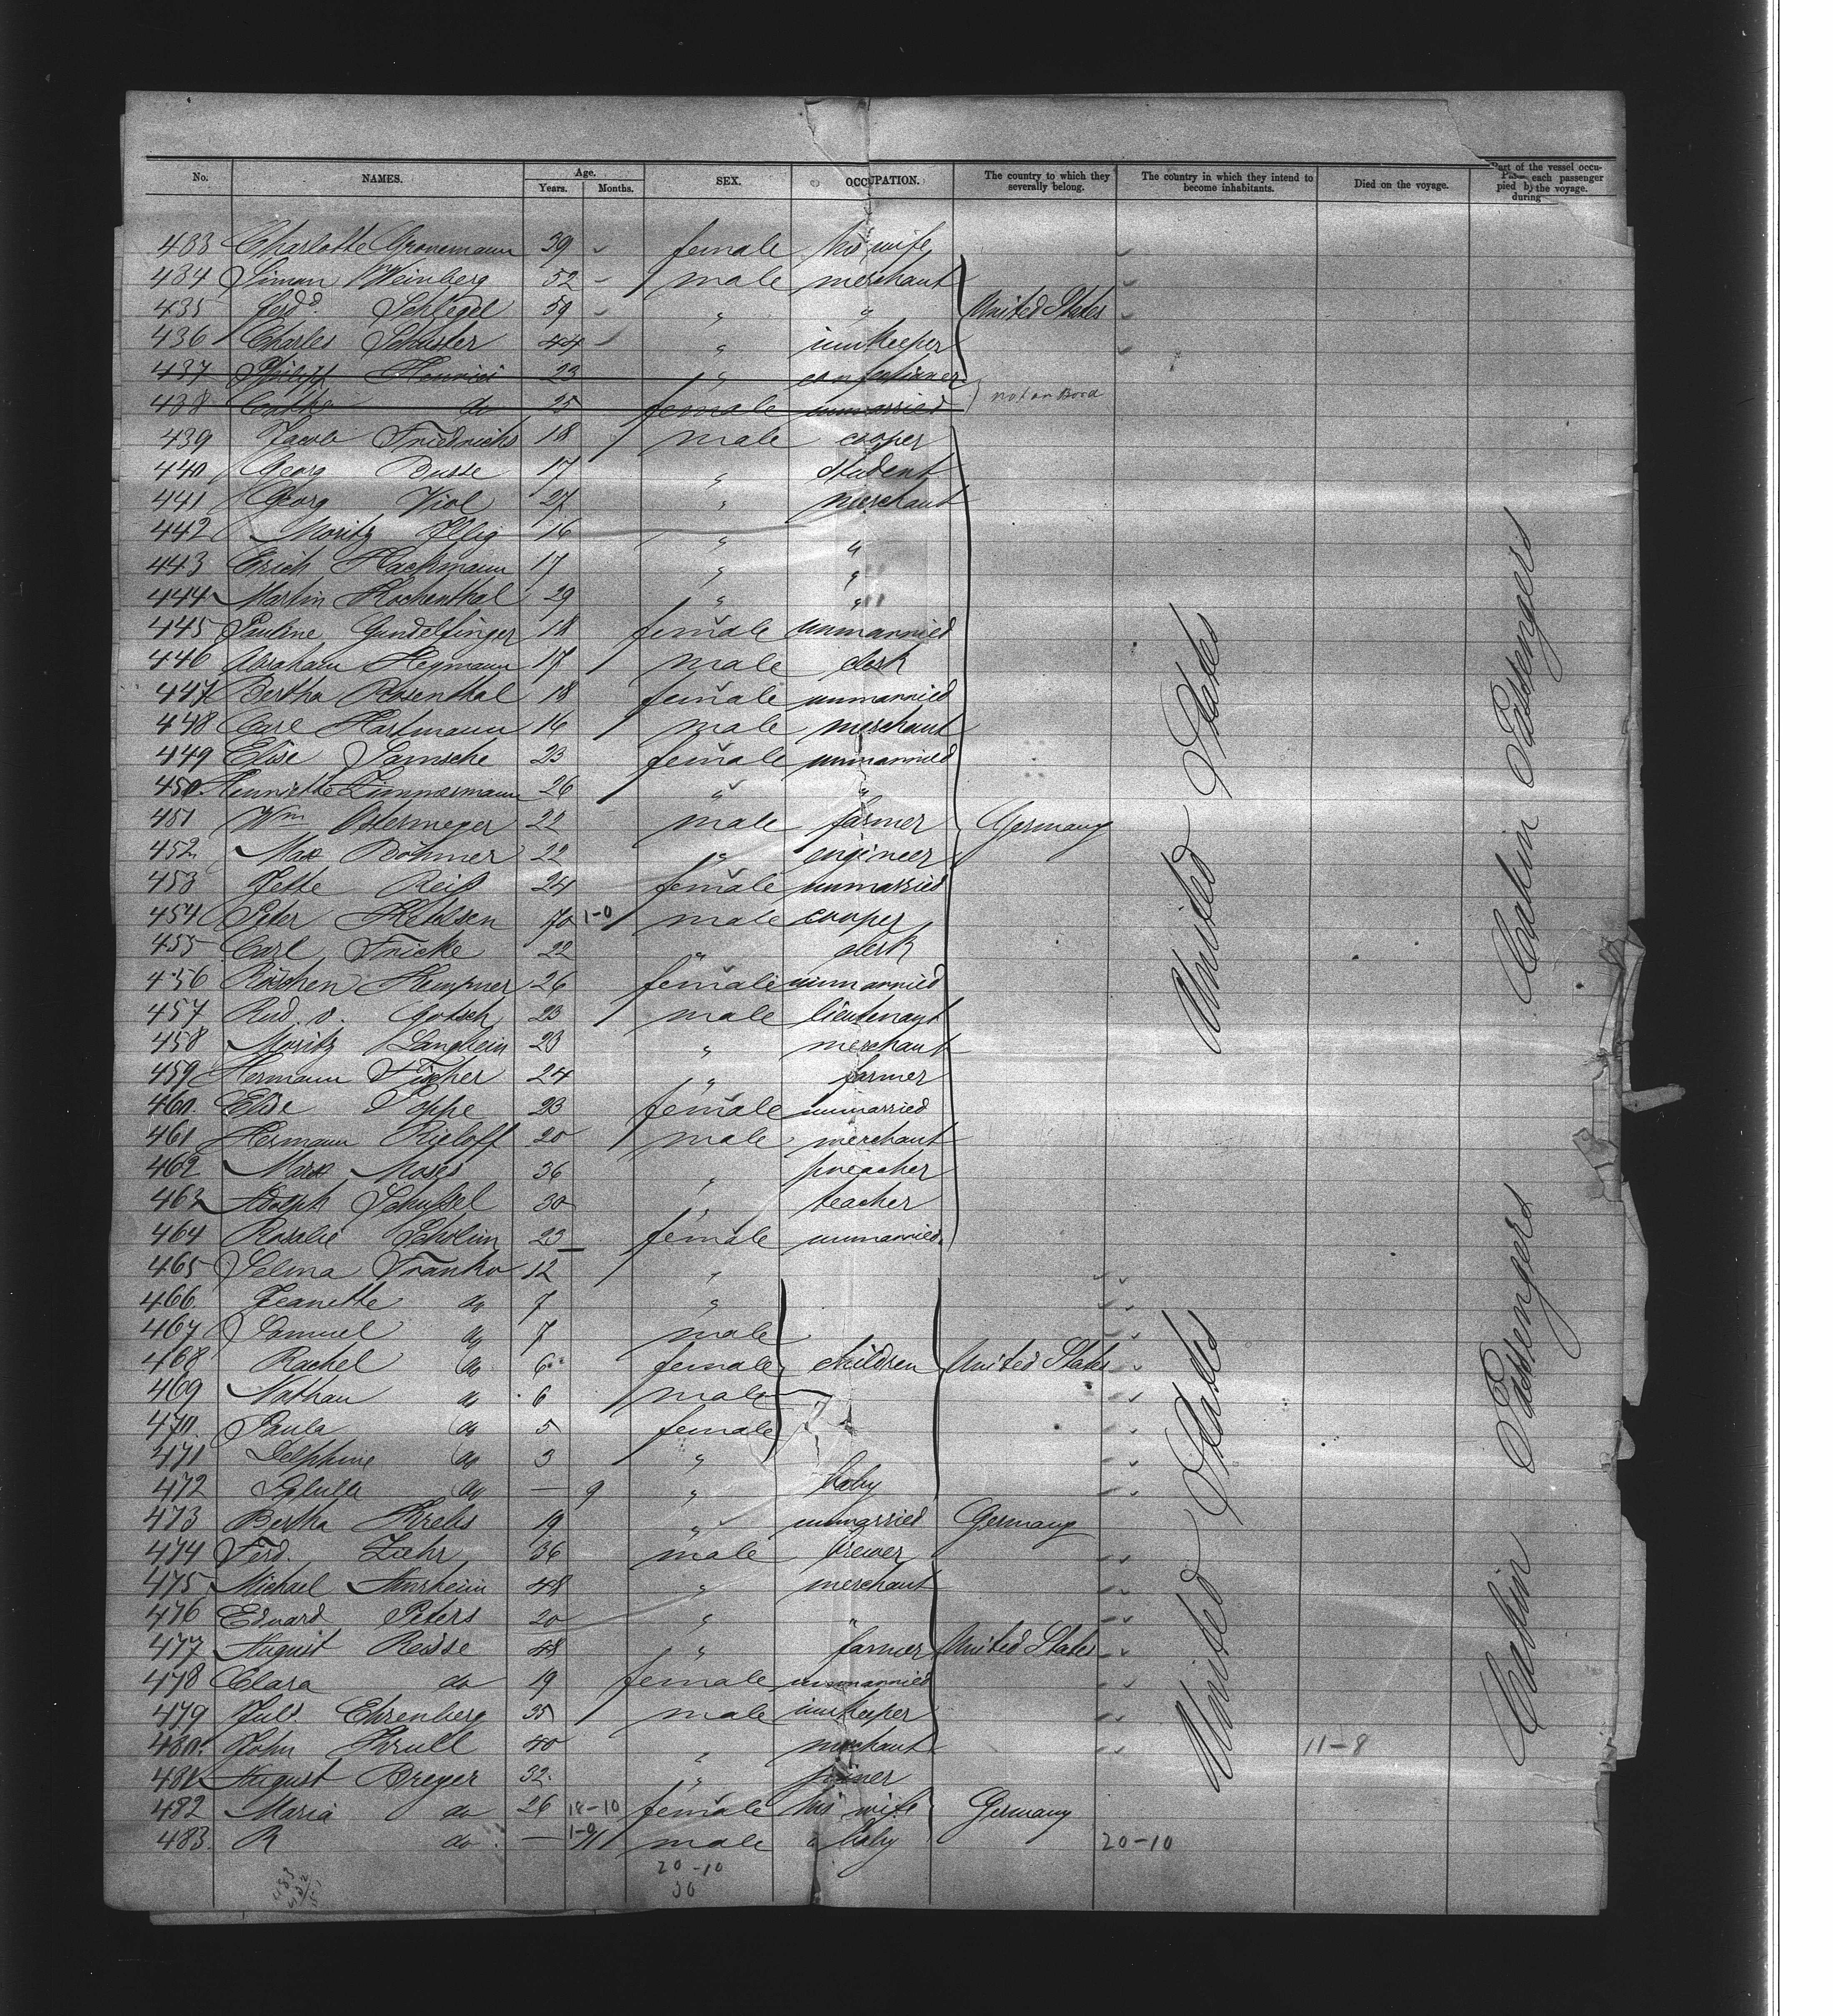 No. NAMES. Age. Years. Months. SEX. OCCUPATION. The country to which they severally belong. The country in which they intend to become inhabitants. Died on the voyage. Part of the vessel occupied by each passenger during the voyage.
433 Charlotte Gronemann 39 female his wife
434 Simon Weinberg 52 male merchant
435 Ferdd. Schlegel 59 " " United States
436 Charles Schuster 44 " innkeeper
437 Philipp Henrici 23 " confectioner
438 do 25 female unmarried not on board
439 Jacob Friedrichs 18 male cooper
440 Georg Busse 17 " student
441 Georg Viol 27 " merchant
442 Moritz Illig 16 " "
443 Erich Hachmann 17 " "
444 Martin Kochenthal 29 " "
445 Pauline Gundelfinger 18 female unmarried
446 Abraham Heymann 17 male clerk
447 Bertha Rosenthal 18 female unmarried
448 Carl Hartmann 16 male merchant
449 Elise Samsche 23 female unmarried
450. Henriette Zimmermann 26 " "
451 Wm Ostermeyer 22 male farmer Germany
452. Max Böhmer 22 " engineer
453 Jette Reiß 24 female unmarried
454 Peter Ketelsen 70 1-0 male cooper
455 Carl Fricke 22 " clerk
456 Röschen Kempner 26 female unmarried
457 Rud. v. Gotsch 23 male lieutenant
458 Moritz Langbein 23 " merchant
459 Hermann Fischer 24 " farmer
460. Elise Poppe 23 female unmarried
461 Hermann Rieloff 20 male merchant
462 Marx Moses 36 " preacher
463 Adolph Schussel 30 " teacher
464 Rosalie Scholim 23 female unmarried
United States
Cabin Passengers
465 Selma Franko 12 "
466. Jeanette do 7 "
467 Samuel do 7 male
468 Rachel do 6 female children United States
469 Nathan do 6 male
470. Paula do 5 female
471 Delphine do 3 "
472 do — 9 " baby
473 Bertha Krebs 19 " unmarried Germany
474 Ferd. Zahr 36 male brewer
475 Michael Arnheim 48 " merchant
476 Eduard Peters 20 " "
477 August Reisse 48 " farmer United States
478 Clara do 19 female unmarried
479 Juls. Ehrenberg 35 male innkeeper
480. John Krull 40 " merchant 11-8
481 August Breyer 32. " joiner
482 Maria do 26 18-10 female his wife Germany
483. R do — 1-0 11 male " baby 20-10
United States
Cabin Passengers
20-10
30
483
432
51